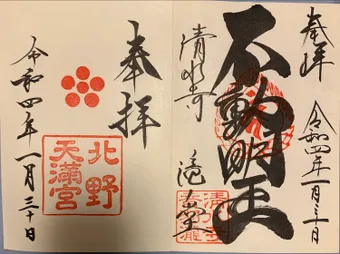 奉拝
令和四年一月三十日
不動明王
清水寺
奉拝
北野
天満宮
令和四年一月三十日